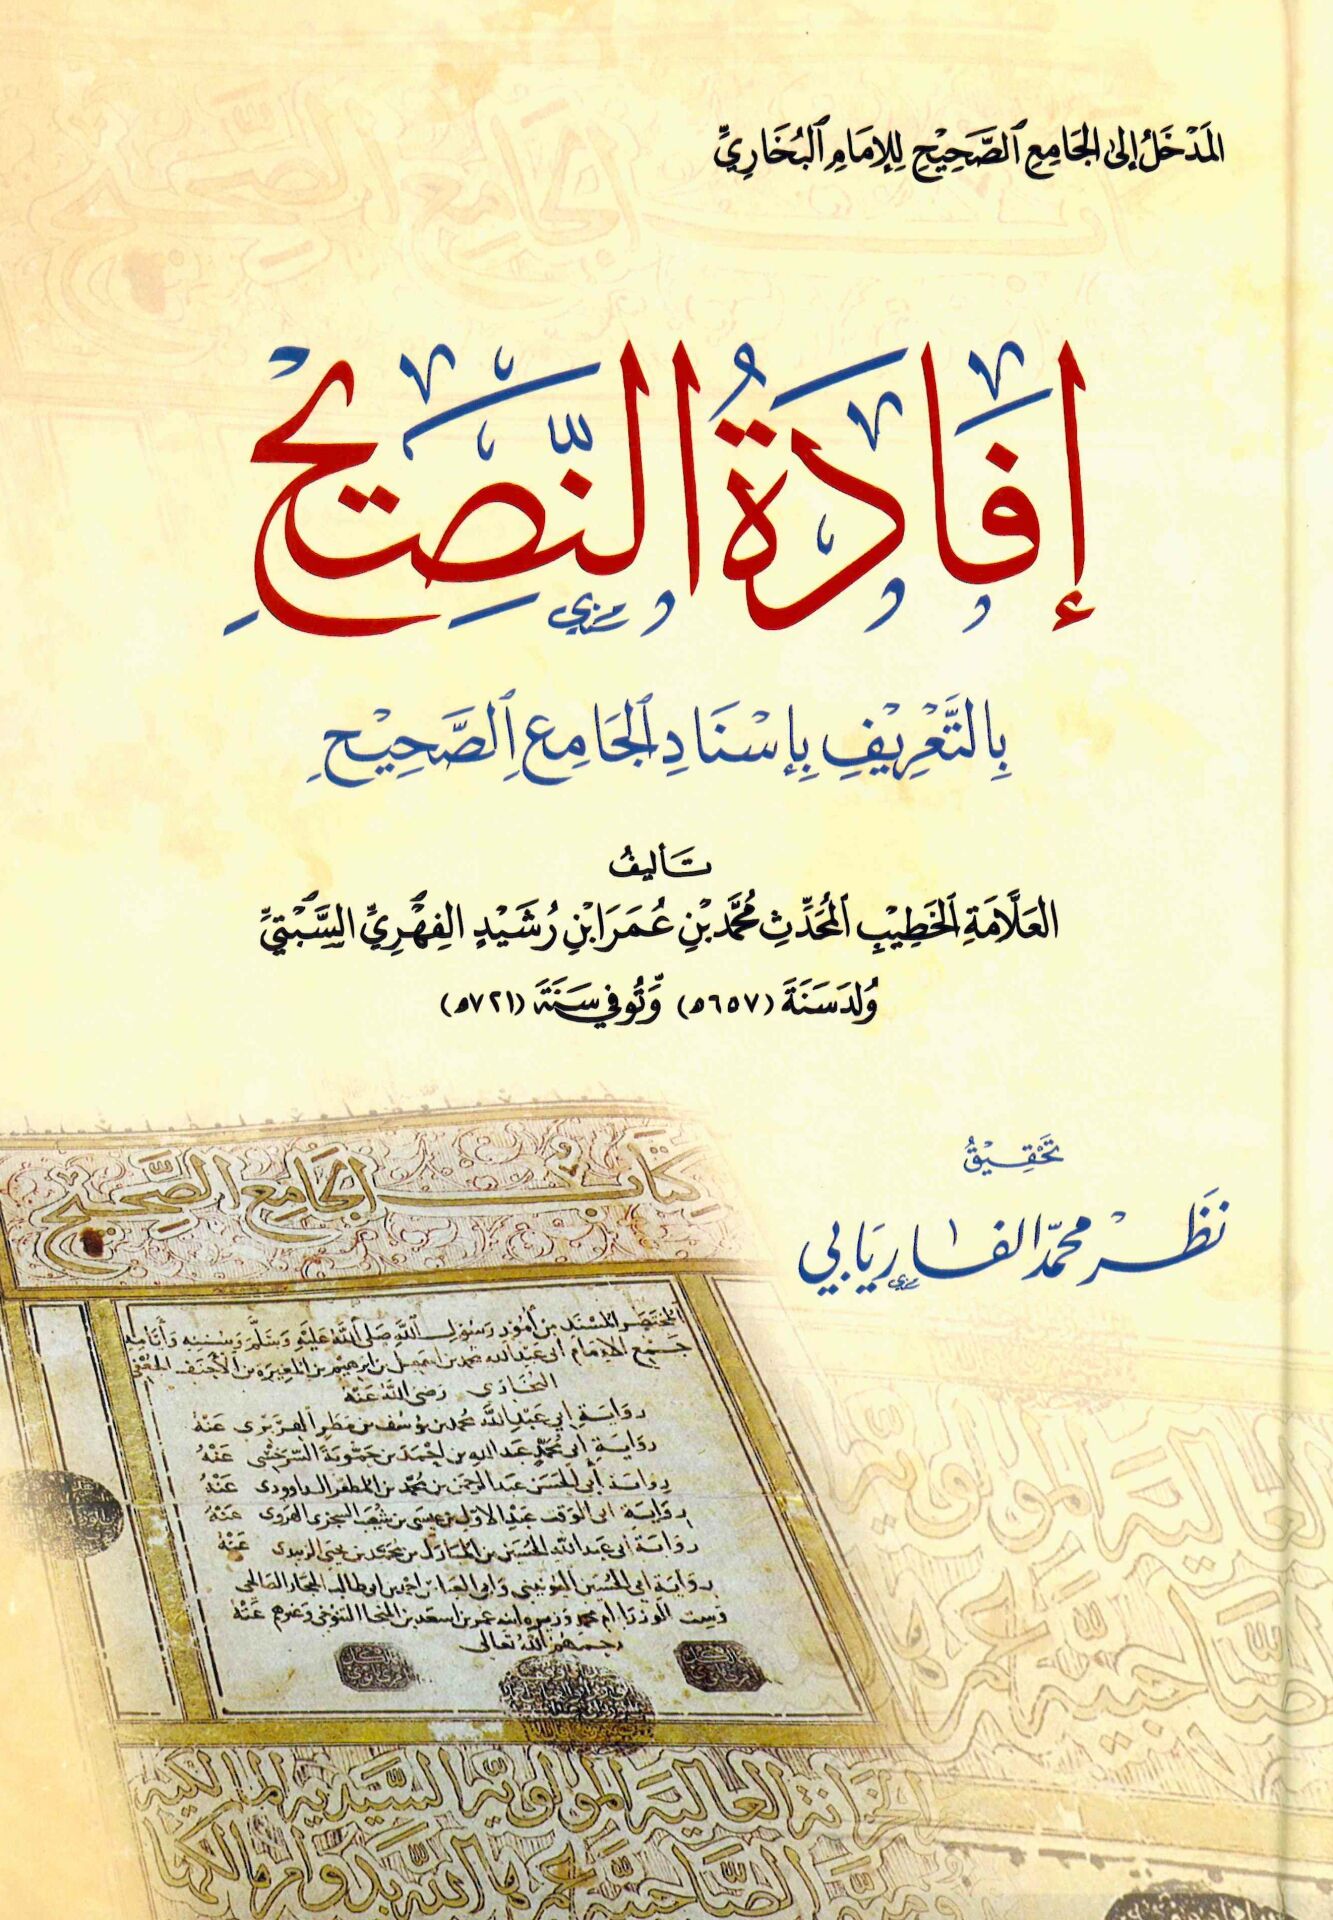 المَدْخَلُ إلى الجَامِعِ الصَّحِيْحِ لِلإمَامِ البُخَارِيِّ
إفَادَةُ النَّصِيْحِ
بِالتَّعْرِيْفِ بِإسْنَادِ الجَامِعِ الصَّحِيْحِ
تَأليفُ
العَلَّامَةِ الخَطِيْبِ المُحَدِّثِ مُحَمَّد بْنِ عُمَرَ ابْنِ رُشَيْدٍ الفِهْرِيِّ السَّبْتِيِّ
وُلِدَ سَنَةَ (٦٥٧هـ) وَتُوُفِّي سَنَةَ (٧٢١هـ)
تَحْقِيْقُ
نَظَرْ محمّد الفَاريَابي
كِتَابُ الجَامِعِ الصَّحِيْحِ
المُختصَر المُسْنَد مِنْ أُمُورِ رَسُولِ اللَّهِ صَلَّى اللَّهُ عَلَيْهِ وَسَلَّمَ وَسُنَنِهِ وَأَيَّامِهِ
جَمْعِ الإمَام أبي عبد الله محمد بن اسمعيل بن ابرهيم بن المغيرة بن الأحنف الجعفي
البُخَارِي رَضِيَ اللَّهُ عَنْهُ
رِوَايَةِ أبي عَبْدِ اللَّهِ محمد بن يوسف بن مطر الفربري عَنْهُ
رِوَايَةِ أبي مُحَمَّدٍ عبد الله بن احمد بن حمّويه السَّرَخْسي عَنْهُ
رِوَايَة أبي الحَسَن عبد الرحمن بن محمّد بن المظفر الداوودي عَنْهُ
رِوَايَة ابي الوقت عَبْد الاول بن عيسى بن شعيب السجزي الهروي عَنْهُ
رِوَايَة أبي عبد الله الحسين بن المبارك بن محمد بن يحيى الزبيدي عَنْهُ
رِوَايَة أبي الحسين اليونيني وابي العباس احمد بن ابي طالب الحجار الصالحي
وست الوزرا ام محمد وزيره ابنه عمر بن اسعد بن المنجا التنوخي وغيرهم عَنْهُ
رحمهم الله تعالى
العالية المولوية السيدية المالكية